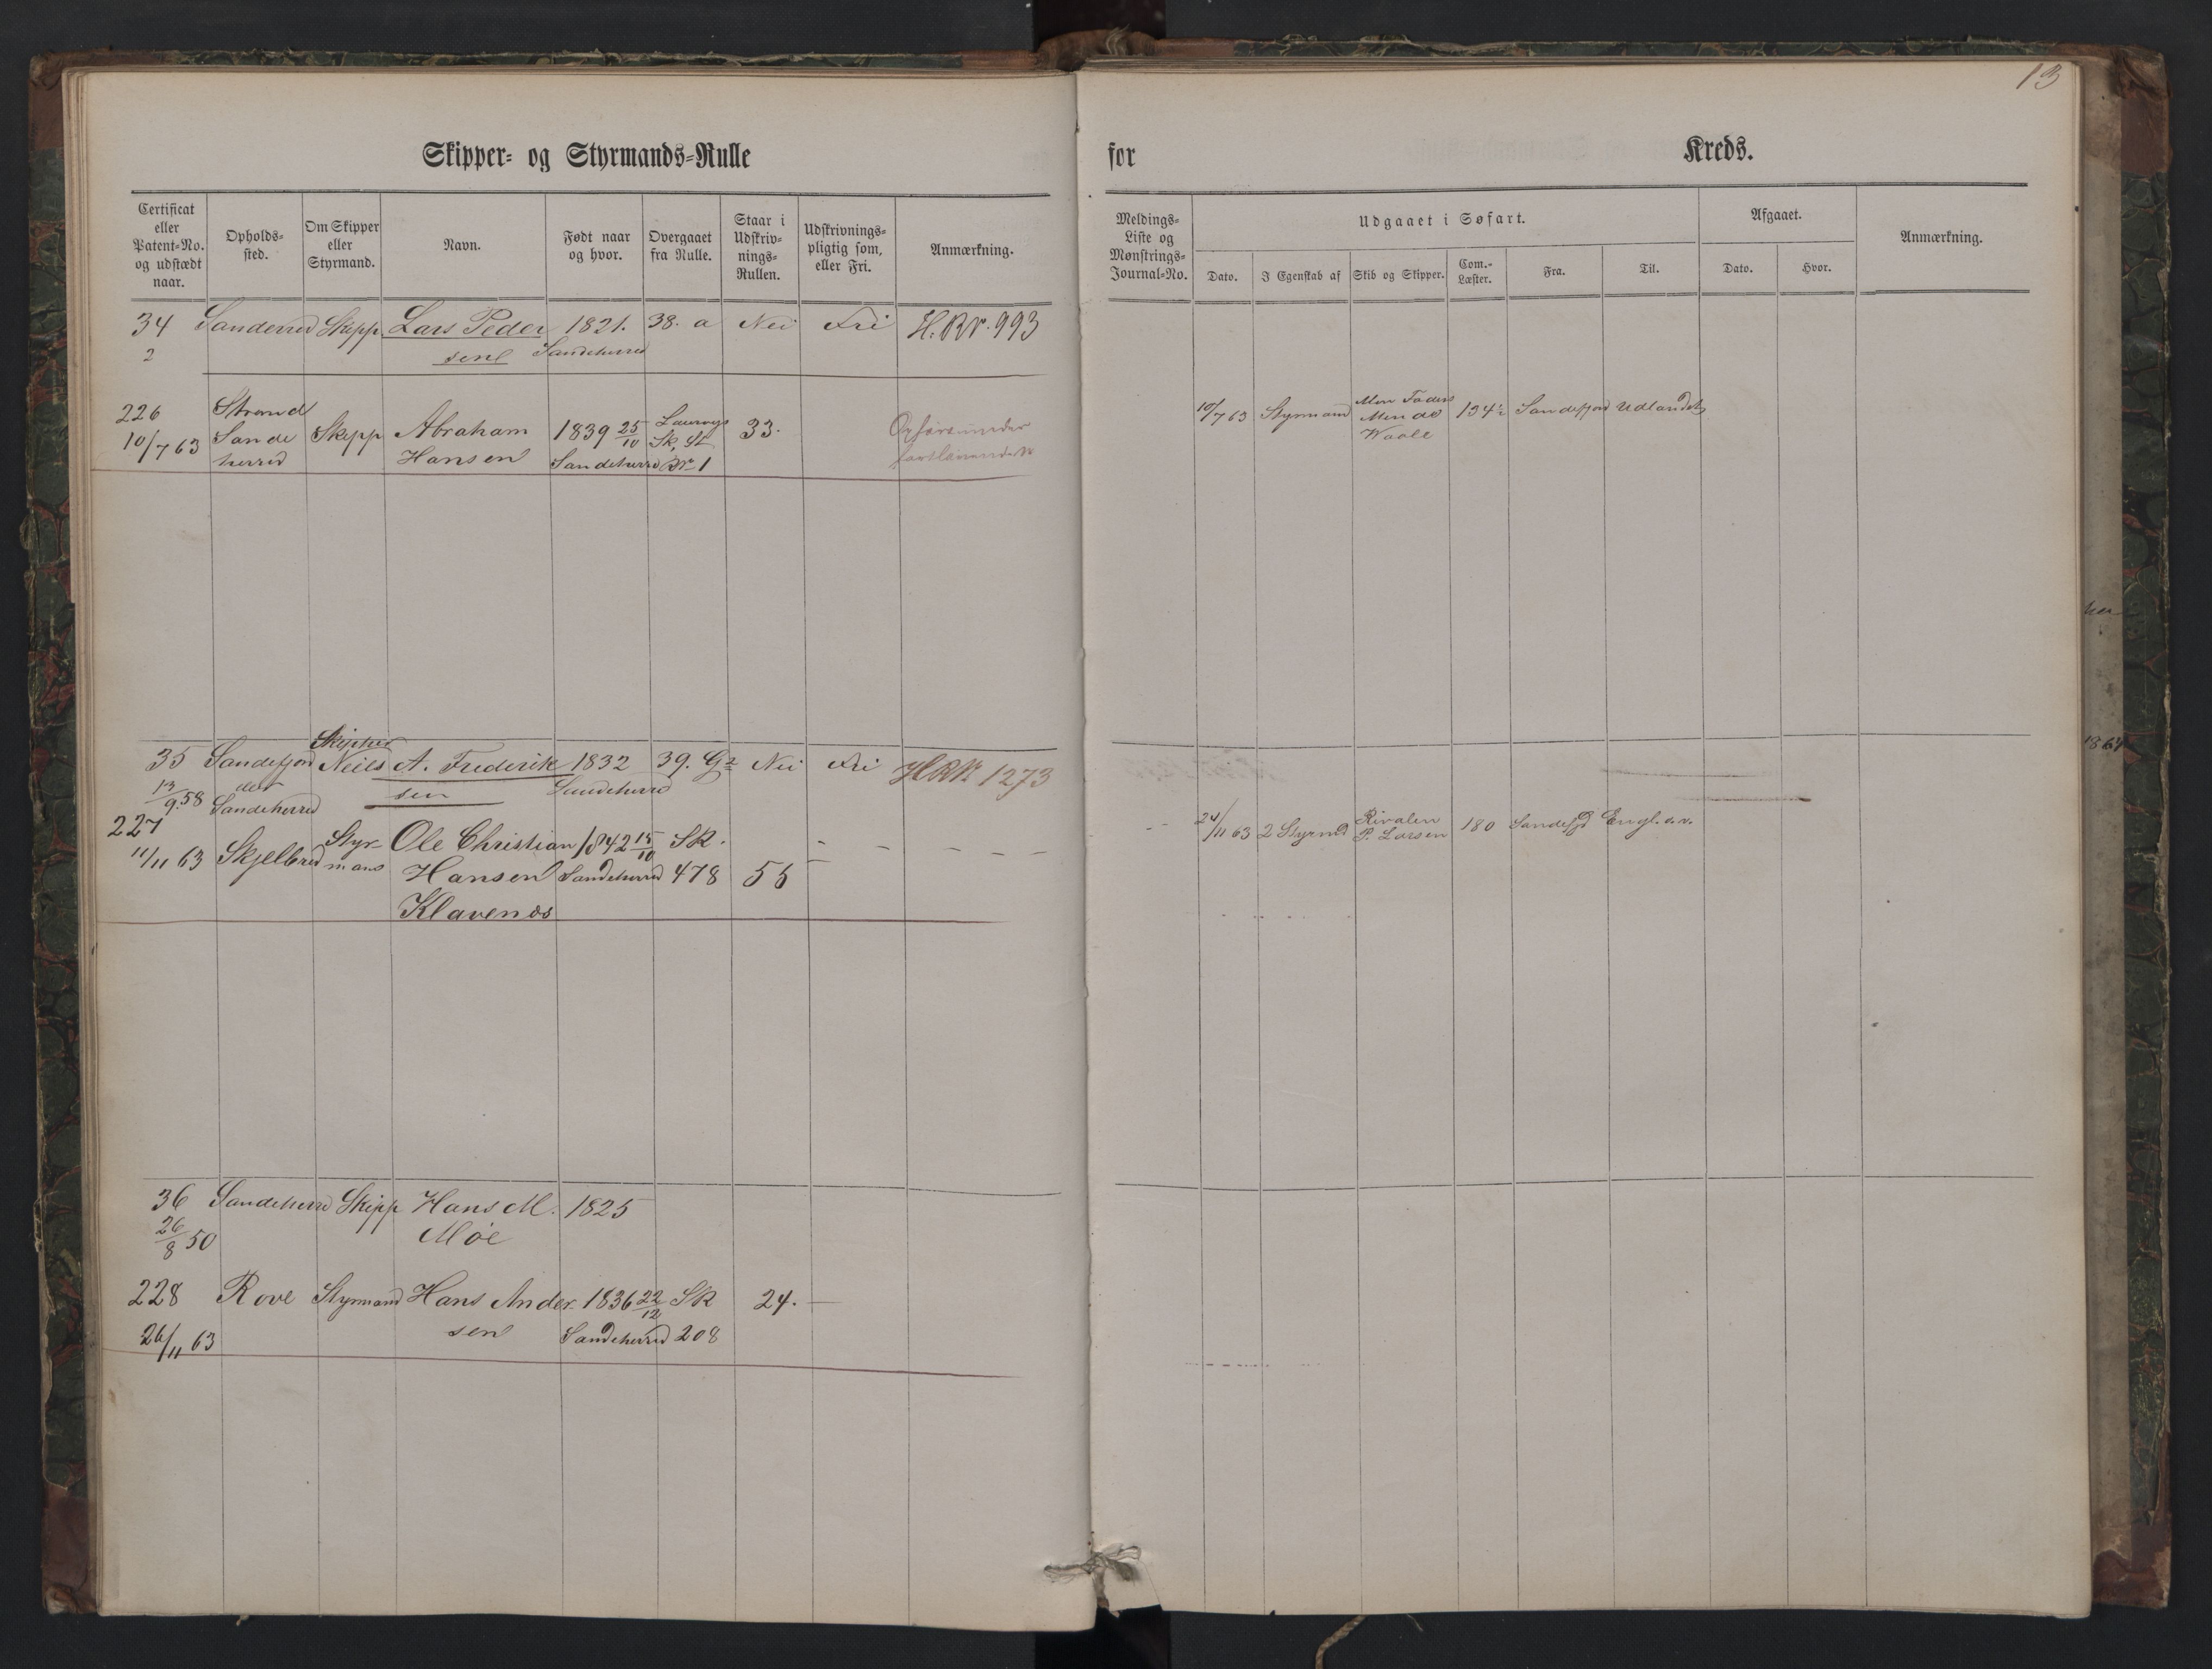 13
Skipper- og Styrmands-Rulle
for Kreds.
Certificat eller Patent-No. og udstædt naar.
Opholds-sted.
Om Skipper eller Styrmand.
Navn.
Født naar og hvor.
Overgaaet fra Rulle.
Staar i Udskriv-nings-Rullen.
Udskrivnings-pligtig som, eller Fri.
Anmærkning.
Meldings-Liste og Mønstrings-Journal-No.
Udgaaet i Søfart.
Dato.
I Egenskab af
Skib og Skipper.
Com.-Læster.
Fra.
Til.
Afgaaet.
Dato.
Hvor.
Anmærkning.
34 Sanderred Skipp Lars Peder 1821. 38. a Nei Fri H.RN.993
2 sen Sandeherred
226 Strand Laurvigs
10/7 63 Sande Skipp Abraham 1839 25/10 Sk. St. 33.
herred Hansen Sandeherred Nr 1
10/7 63 Styrmand 134½ Sandefjord Udlandet
Skipper
35 Sandefjord Neils A. Frederik 1832 39. Nei Fri HRN 1273
13/9.58 Sandeherred sen Sandeherred
227 Styr- Ole Christian 1842 15/10 SK.
11/11 63 Skjelbred mans Hansen Sandeherred 478 55
Klavenæs
24/11 63 2 Styrmd Rivalen 180 Sandefjd Engl.
P. Larsen
36 Sandeherred Skipp Hans M. 1825
26/8 50 Møe
228 Rove Styrmand Hans Ander- 1836 22/12 SK 24.
26/11 63 sen Sandeherred 208
1864